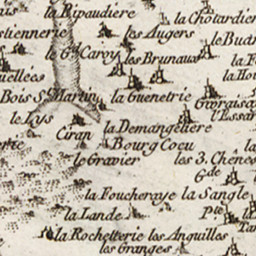 la Ripaudiere
la Chotardier
stiennerie
les Augers
le Gd. Caroy
les Brunaux
le Budr
uellées
la F
la Hou
Bois St. Martin
la Guenetrie
le Lys
l'Essar
Ciran
la Demangeliere
Bourg Coeu
le Gravier
les 3. Chênes
Gde
la Foucheraye
la Sangle
la Lande
Pte
la
la Rochetterie
les Anguilles
les Granges